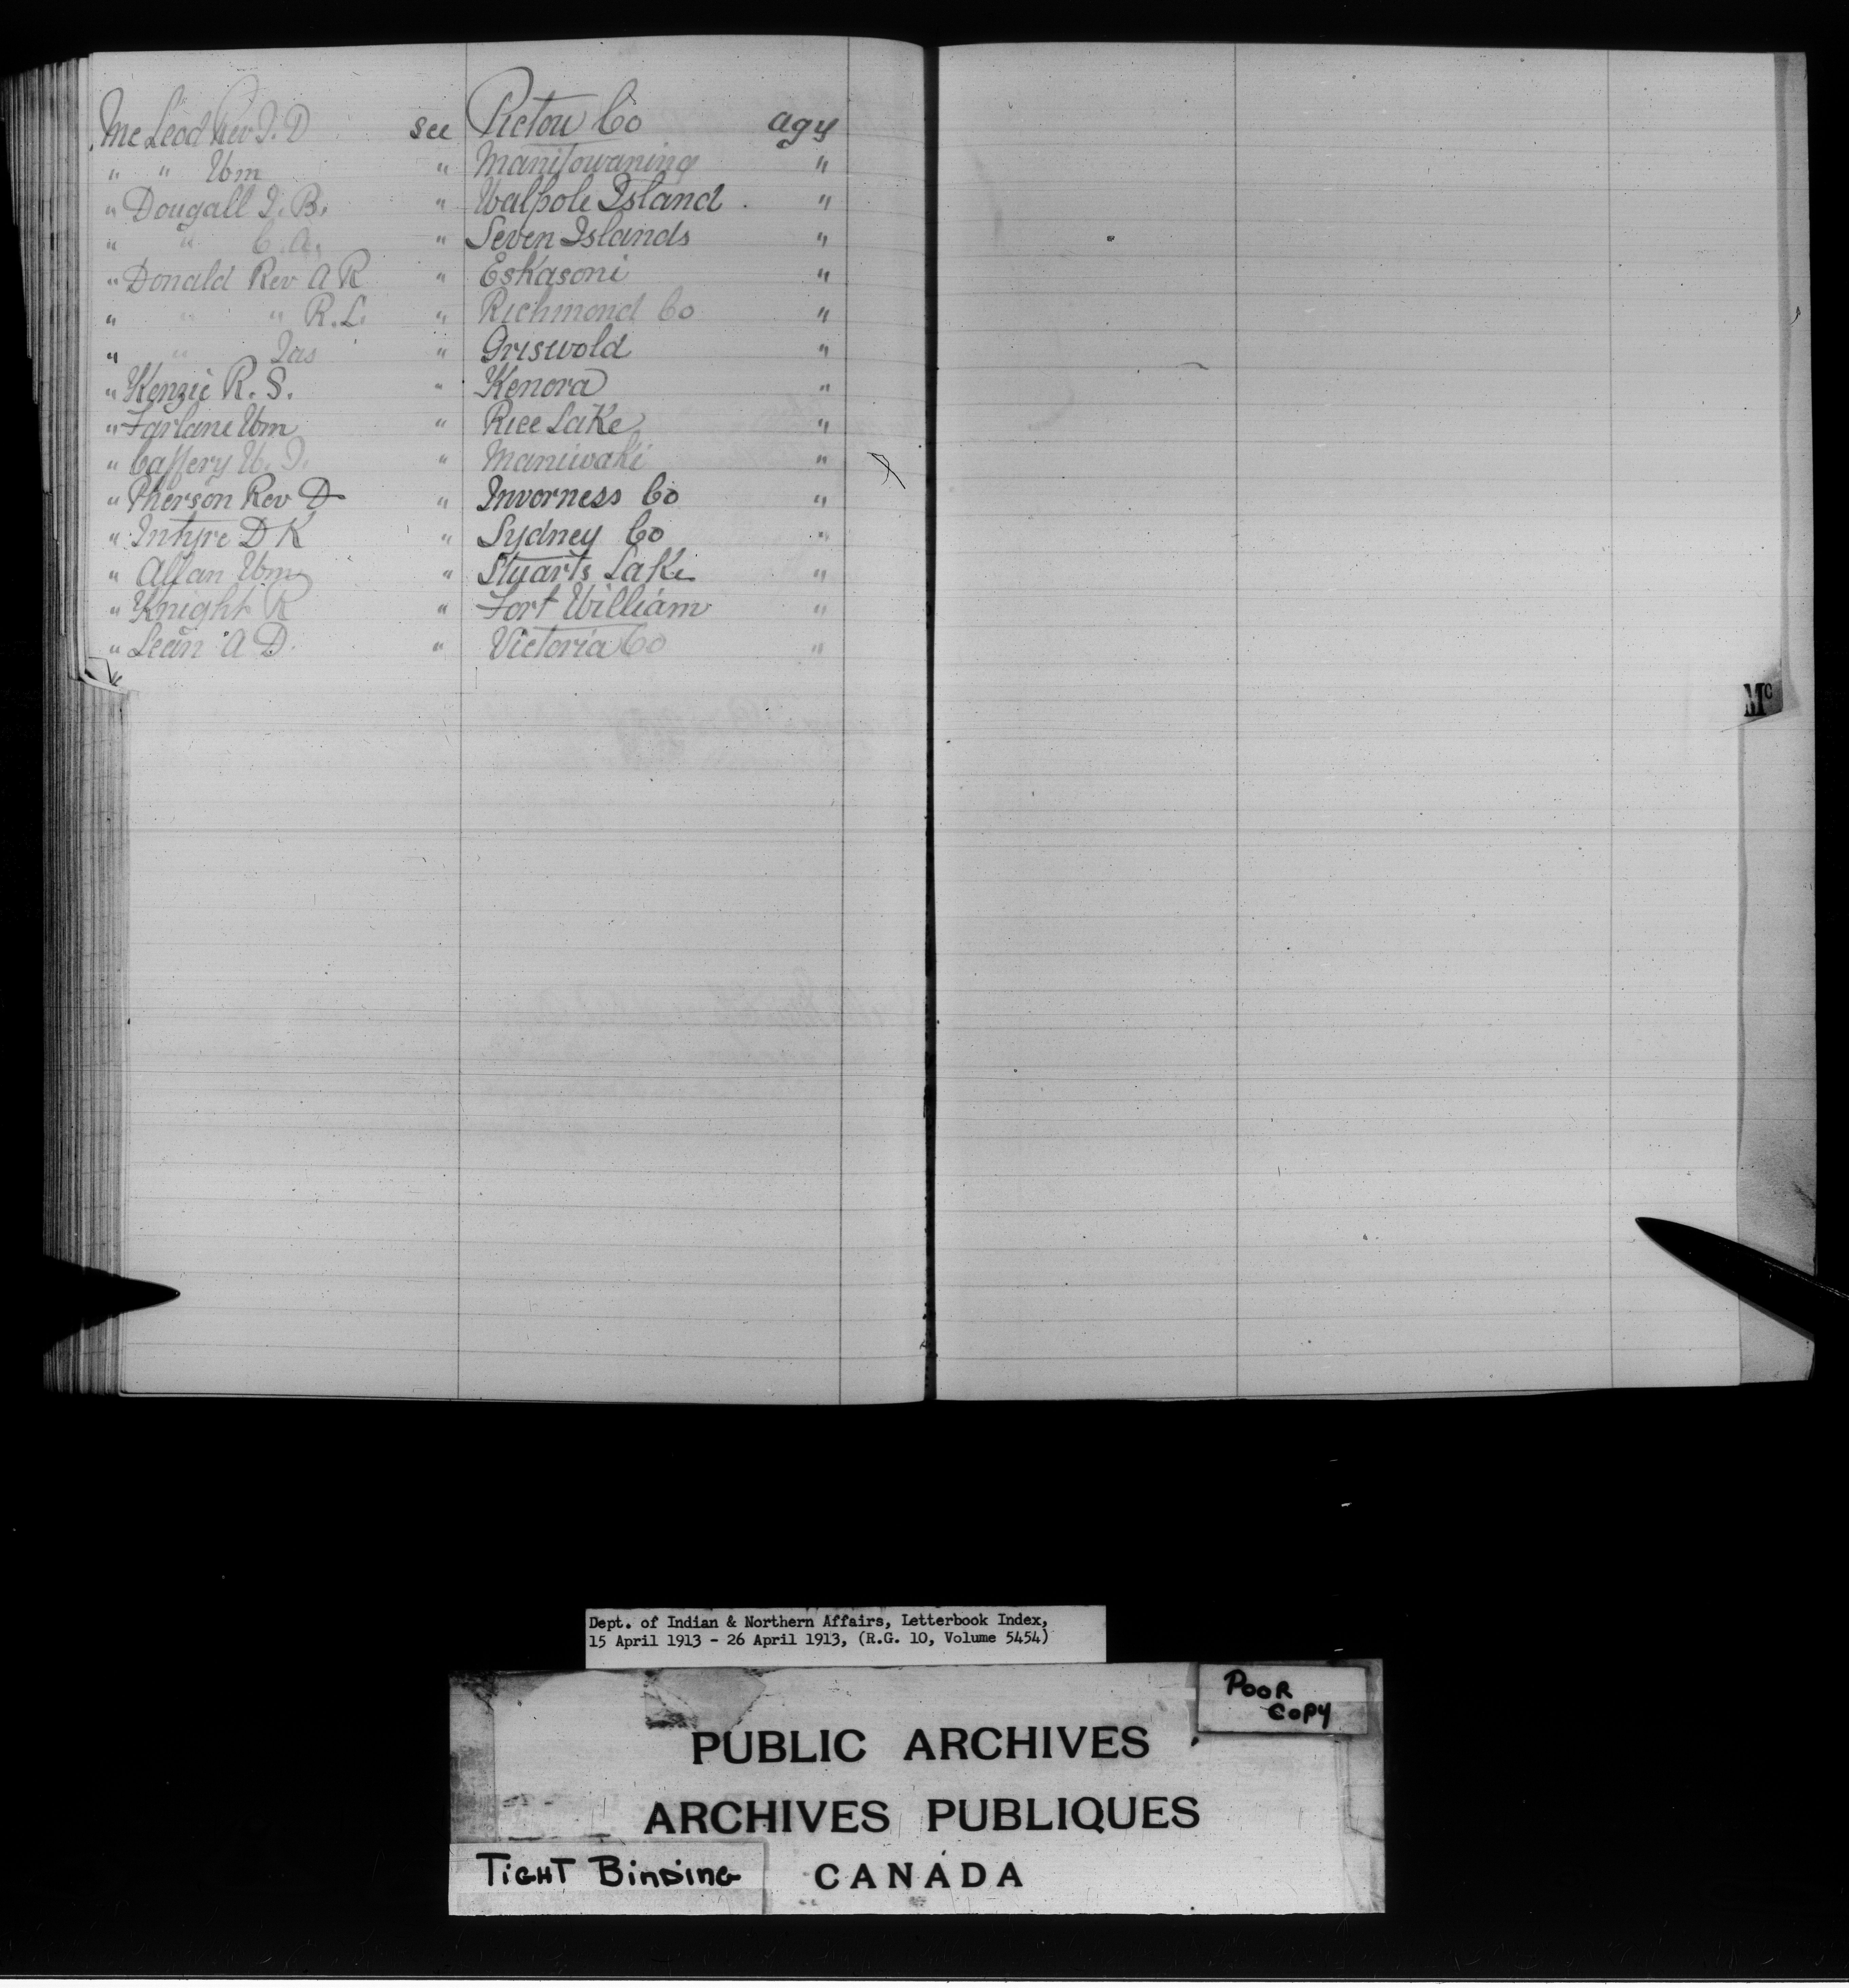 McLeod Rev J. D see Pictou Co agy
" " Wm " Manitowaning "
" Dougall J. B. " Walpole Island "
" " C. A. " Seven Islands "
" Donald Rev A R " Eskasoni "
" " " R. L. " Richmond Co "
" " Jas " Griswold "
" Kenzie R. S. " Kenora "
" Farlane Wm " Rice Lake "
" Caffery W. J. " Maniwaki "
" Pherson Rev D " Inverness Co "
" Intyre D K " Sydney Co "
" Allan Wm " Stuarts Lake "
" Knight R " Fort William "
" Lean A D. " Victoria Co "
Mc
Dept. of Indian & Northern Affairs, Letterbook Index,
15 April 1913 - 26 April 1913, (R.G. 10, Volume 5454)
POOR
COPY
PUBLIC ARCHIVES
ARCHIVES PUBLIQUES
TIGHT BINDING
CANADA